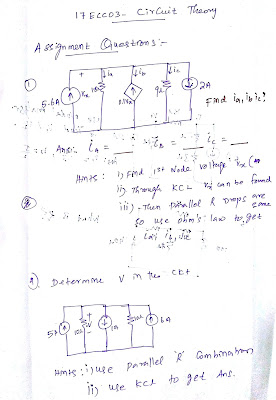 17ECC03- Circuit Theory
Assignment Questions:-
①
5.6A
Vx
18Ω
ia
ib
ic
9Ω
2A
Find ia, ib, ic?
Ans: ia = ib = ic =
Hints: i) Find 1st Node voltage Vx
ii) Through KCL Vx can be found
iii) Then parallel R drops are same
so use ohm's law to get
ia, ib, ic
2) Determine V in the ckt.
5A
10Ω
V
1A
10Ω
6A
Hints: i) use parallel R Combination
ii) use KCL to get Ans.